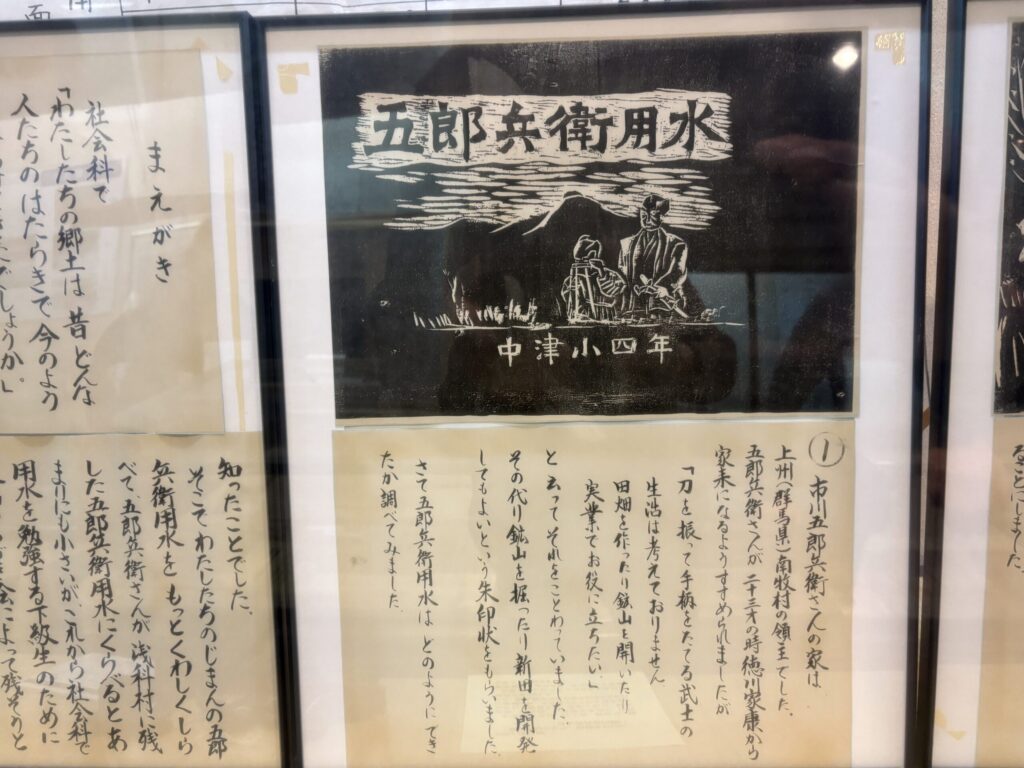 まえがき
社会科で
「わたしたちの郷土は昔どんな
人たちのはたらきで今のよう
でしょうか。」
知ったことでした。
そこでわたしたちのじまんの五郎
兵衛用水をもっとくわしくしら
べて、五郎兵衛さんが浅科村に残
した五郎兵衛用水にくらべるとあ
まりにも小さいが、これから社会科で
用水を勉強する下級生のために
会によって残そうと
五郎兵衛用水
中津小四年
① 市川五郎兵衛さんの家は
上州(群馬県)南牧村の領主でした。
五郎兵衛さんが二十三才の時徳川家康から
家来になるようすすめられましたが
「刀を振って手柄をたてる武士の
生活は考えておりません
田畑を作ったり鉱山を開いたり
実業でお役に立ちたい。」
と云ってそれをことわっていました。
その代り鉱山を掘ったり新田を開発
してもよいという朱印状をもらいました。
さて五郎兵衛用水はどのようにでき
たか調べてみました。
ことにしました。